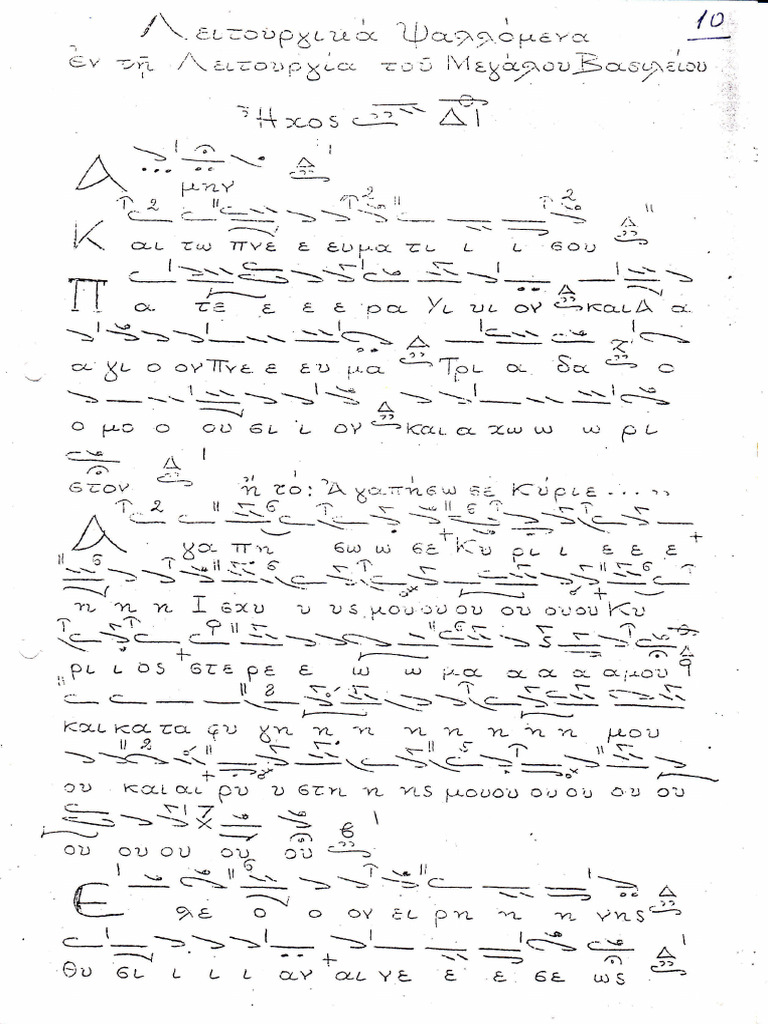 10
Λειτουργικά Ψαλλόμενα
ἐν τῇ Λειτουργία τοῦ Μεγάλου Βασιλείου
Ἦχος
Α μην
Κ αι τω πνε ε ευμα τι ι ι σου
Π α τε ε ε ε ρα Υι υι ον και Α α
α γι ο ον Πνε ε ευ μα Τρι α δα ο
ο μο ο ου σι ι ον και α χω ω ω ρι
στον ἢ τό: Ἀγαπήσω σε Κύριε .....
Α γα πη σω ω σε Κυ ρι ι ε ε ε
η η η Ι σχυ υ υς μου ου ου ου ου ου Κυ
ρι ι ος στε ρε ε ω ω μα α α α α μου
και κα τα φυ γη η η η η η η η μου
ου και αι ρυ υ στη η ης μου ου ου ου ου ου
ου ου ου ου ου
Ε λε ο ο ον ει ρη η η η νης
θυ σι ι ι ι αν αι νε ε ε σε ως